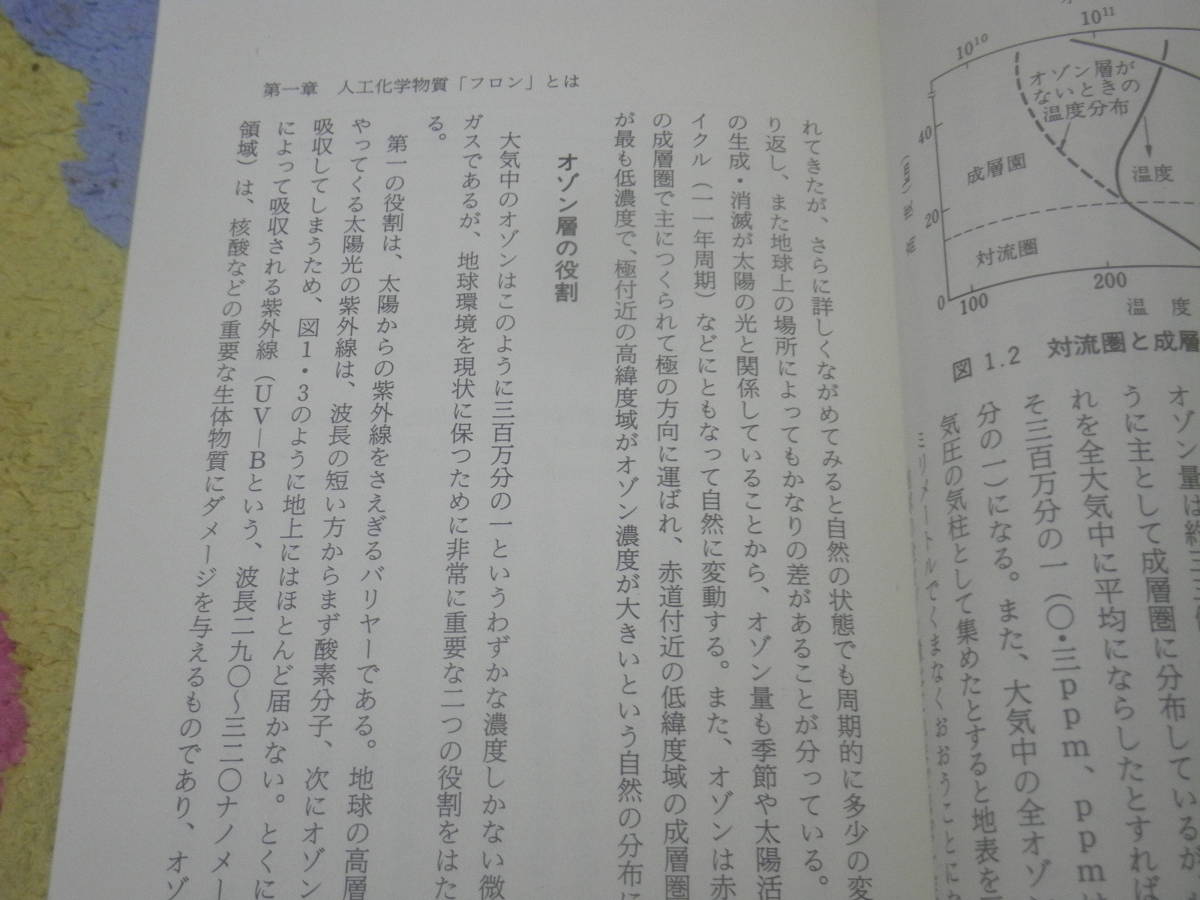 オゾン層が
ないときの
温度分布
温度
成層圏
対流圏
10¹⁰
10¹¹
40
20
0
100
200
温度
図 1.2 対流圏と成層
オゾン量は約三
うに主として成層圏に分布しているが
れを全大気中に平均にならしたとすれば
そ三百万分の一（〇・三ppm、ppmは
分の一）になる。また、大気中の全オゾン
気圧の気柱として集めたとすると地表を
ミリメートルでくまなくおおうことにな
第一章 人工化学物質「フロン」とは
れてきたが、さらに詳しくながめてみると自然の状態でも周期的に多少の変
り返し、また地球上の場所によってもかなりの差があることが分っている。
の生成・消滅が太陽の光と関係していることから、オゾン量も季節や太陽活
イクル（一一年周期）などにともなって自然に変動する。また、オゾンは赤
の成層圏で主につくられて極の方向に運ばれ、赤道付近の低緯度域の成層圏
が最も低濃度で、極付近の高緯度域がオゾン濃度が大きいという自然の分布に
オゾン層の役割
大気中のオゾンはこのように三百万分の一というわずかな濃度しかない微
ガスであるが、地球環境を現状に保つために非常に重要な二つの役割をはた
る。
第一の役割は、太陽からの紫外線をさえぎるバリヤーである。地球の高層
やってくる太陽光の紫外線は、波長の短い方からまず酸素分子、次にオゾン
吸収してしまうため、図1・3のように地上にはほとんど届かない。とくに
によって吸収される紫外線（UV—Bという、波長二九〇〜三二〇ナノメー
領域）は、核酸などの重要な生体物質にダメージを与えるものであり、オゾ